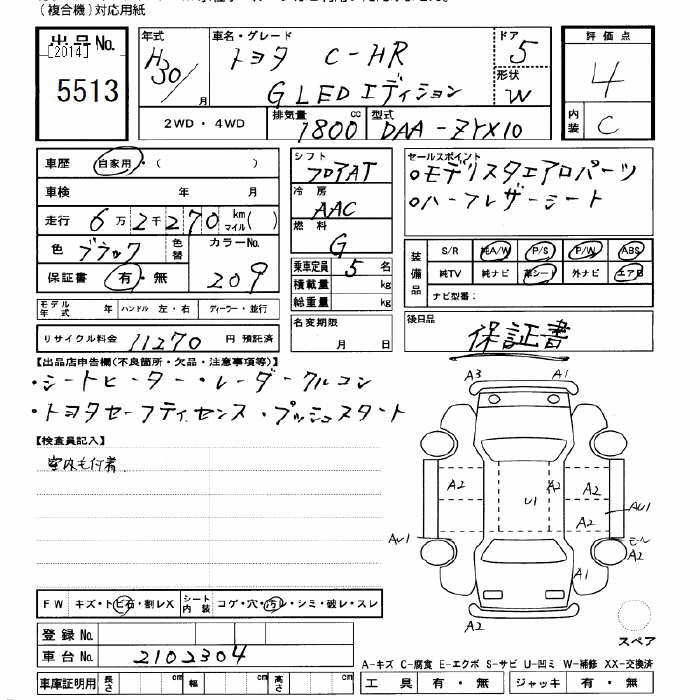 (複合機)対応用紙
出品No.
[2014]
5513
年式
H30/
月
車名・グレード
トヨタ C-HR
G LEDエディション
ドア
5
形状
W
評価点
4
内装
C
2WD・4WD
排気量
1800
cc
型式
DAA-ZYX10
車歴
自家用・( )
車検 年 月
走行 6万2千270 km マイル( )
色
ブラック
色替
カラーNo.
209
保証書 有・無
モデル年式 年
ハンドル 左・右
ディーラー・並行
リサイクル料金 11270 円 預託済
シフト
フロアAT
冷房
AAC
燃料
G
乗車定員 5 名
積載量 kg
総重量 kg
名変期限
月 日
セールスポイント
○モデリスタエアロパーツ
○ハーフレザーシート
装備品
S/R 純A/W P/S P/W ABS
純TV 純ナビ 革シート 外ナビ エアB
ナビ型番:
後日品
保証書
【出品店申告欄(不良箇所・欠品・注意事項等)】
・シートヒーター・レーダークルコン
・トヨタセーフティセンス・プッシュスタート
【検査員記入】
室内毛付着
A3
A1
A2
A2
A2
A2
U1
AU1
AU1
モール
A2
A1
A2
スペア
FW キズ・トビ石・割レX
シート内装 コゲ・穴・汚レ・シミ・破レ・スレ
登録No.
車台No. 2102304
車庫証明用 長さ cm 幅 cm 高さ cm
A-キズ C-腐食 E-エクボ S-サビ U-凹ミ W-補修 XX-交換済
工具 有・無 ジャッキ 有・無